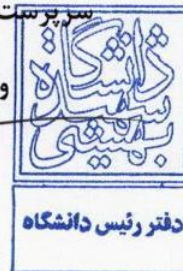 سرپرست
و
دانشگاه
شهید
بهشتی
دفتر رئیس دانشگاه